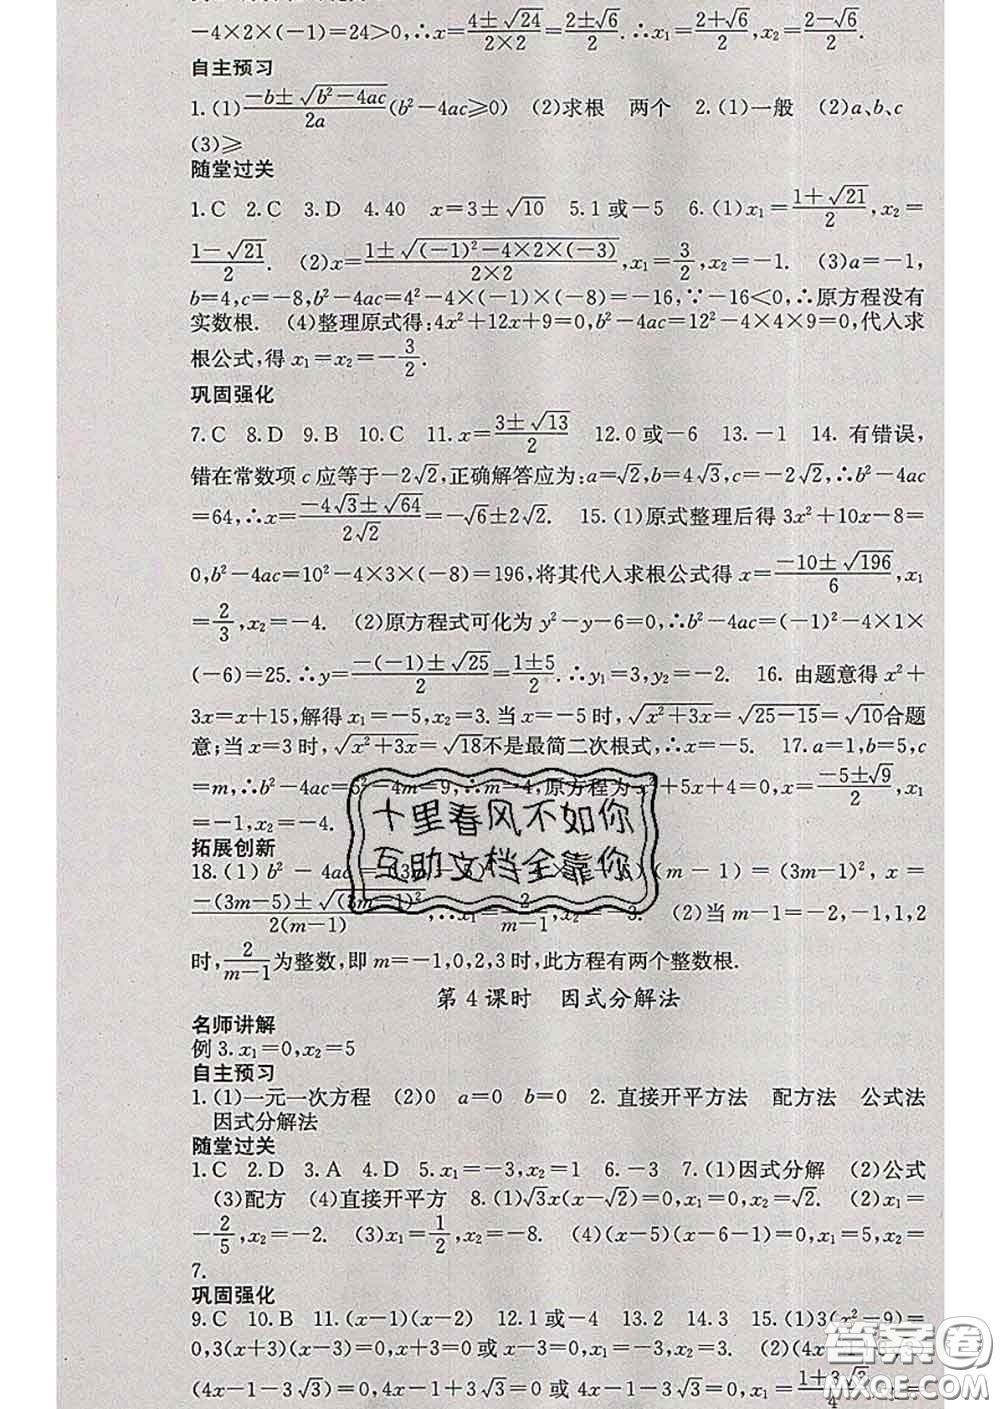 −4×2×(−1)=24>0,∴x=(4±√24)/(2×2)=(2±√6)/2.∴x₁=(2+√6)/2,x₂=(2−√6)/2.
自主预习
1.(1)(−b±√(b²−4ac))/(2a)(b²−4ac≥0) (2)求根 两个 2.(1)一般 (2)a、b、c
(3)≥
随堂过关
1.C 2.C 3.D 4.40 x=3±√10 5.1或−5 6.(1)x₁=(1+√21)/2,x₂=
(1−√21)/2. (2)x=(1±√((−1)²−4×2×(−3)))/(2×2),x₁=3/2,x₂=−1. (3)a=−1,
b=4,c=−8,b²−4ac=4²−4×(−1)×(−8)=−16,∵−16<0,∴原方程没有
实数根. (4)整理原式得:4x²+12x+9=0,b²−4ac=12²−4×4×9=0,代入求
根公式,得x₁=x₂=−3/2.
巩固强化
7.C 8.D 9.B 10.C 11.x=(3±√13)/2 12.0或−6 13.−1 14.有错误,
错在常数项c应等于−2√2,正确解答应为:a=√2,b=4√3,c=−2√2,∴b²−4ac
=64,∴x=(−4√3±√64)/(2√2)=−√6±2√2. 15.(1)原式整理后得3x²+10x−8=
0,b²−4ac=10²−4×3×(−8)=196,将其代入求根公式得x=(−10±√196)/6,x₁
=2/3,x₂=−4. (2)原方程式可化为y²−y−6=0,∴b²−4ac=(−1)²−4×1×
(−6)=25.∴y=(−(−1)±√25)/2=(1±5)/2.∴y₁=3,y₂=−2. 16.由题意得x²+
3x=x+15,解得x₁=−5,x₂=3.当x=−5时,√(x²+3x)=√(25−15)=√10合题
意;当x=3时,√(x²+3x)=√18不是最简二次根式,∴x=−5. 17.a=1,b=5,c
=m,∴b²−4ac=5²−4m=9,∴m=4,原方程为x²+5x+4=0,x=(−5±√9)/2,x₁
=−1,x₂=−4.
十里春风不如你
互助文档全靠你
拓展创新
18.(1)b²−4ac= (m−1)=(3m−1)²,x=
(−(3m−5)±√(3m−1)²)/(2(m−1)),∴x₁=2/(m−1),x₂=−3. (2)当m−1=−2,−1,1,2
时,2/(m−1)为整数,即m=−1,0,2,3时,此方程有两个整数根.
第4课时 因式分解法
名师讲解
例3.x₁=0,x₂=5
自主预习
1.(1)一元一次方程 (2)0 a=0 b=0 2.直接开平方法 配方法 公式法
因式分解法
随堂过关
1.C 2.D 3.A 4.D 5.x₁=−3,x₂=1 6.−3 7.(1)因式分解 (2)公式
(3)配方 (4)直接开平方 8.(1)√3x(x−√2)=0,x₁=0,x₂=√2. (2)x₁=
−2/5,x₂=−2. (3)x₁=1/2,x₂=−8. (4)(x−5)(x−6−1)=0,x₁=5,x₂=
7.
巩固强化
9.C 10.B 11.(x−1)(x−2) 12.1或−4 13.2 14.3 15.(1)3(x²−9)=
0,3(x+3)(x−3)=0,x+3=0或x−3=0,x₁=−3,x₂=3. (2)(4x−1
(4x−1−3√3)=0,4x−1+3√3=0或4x−1−3√3=0,x₁=(1+3√3)/4
答案圈
MXQE.COM